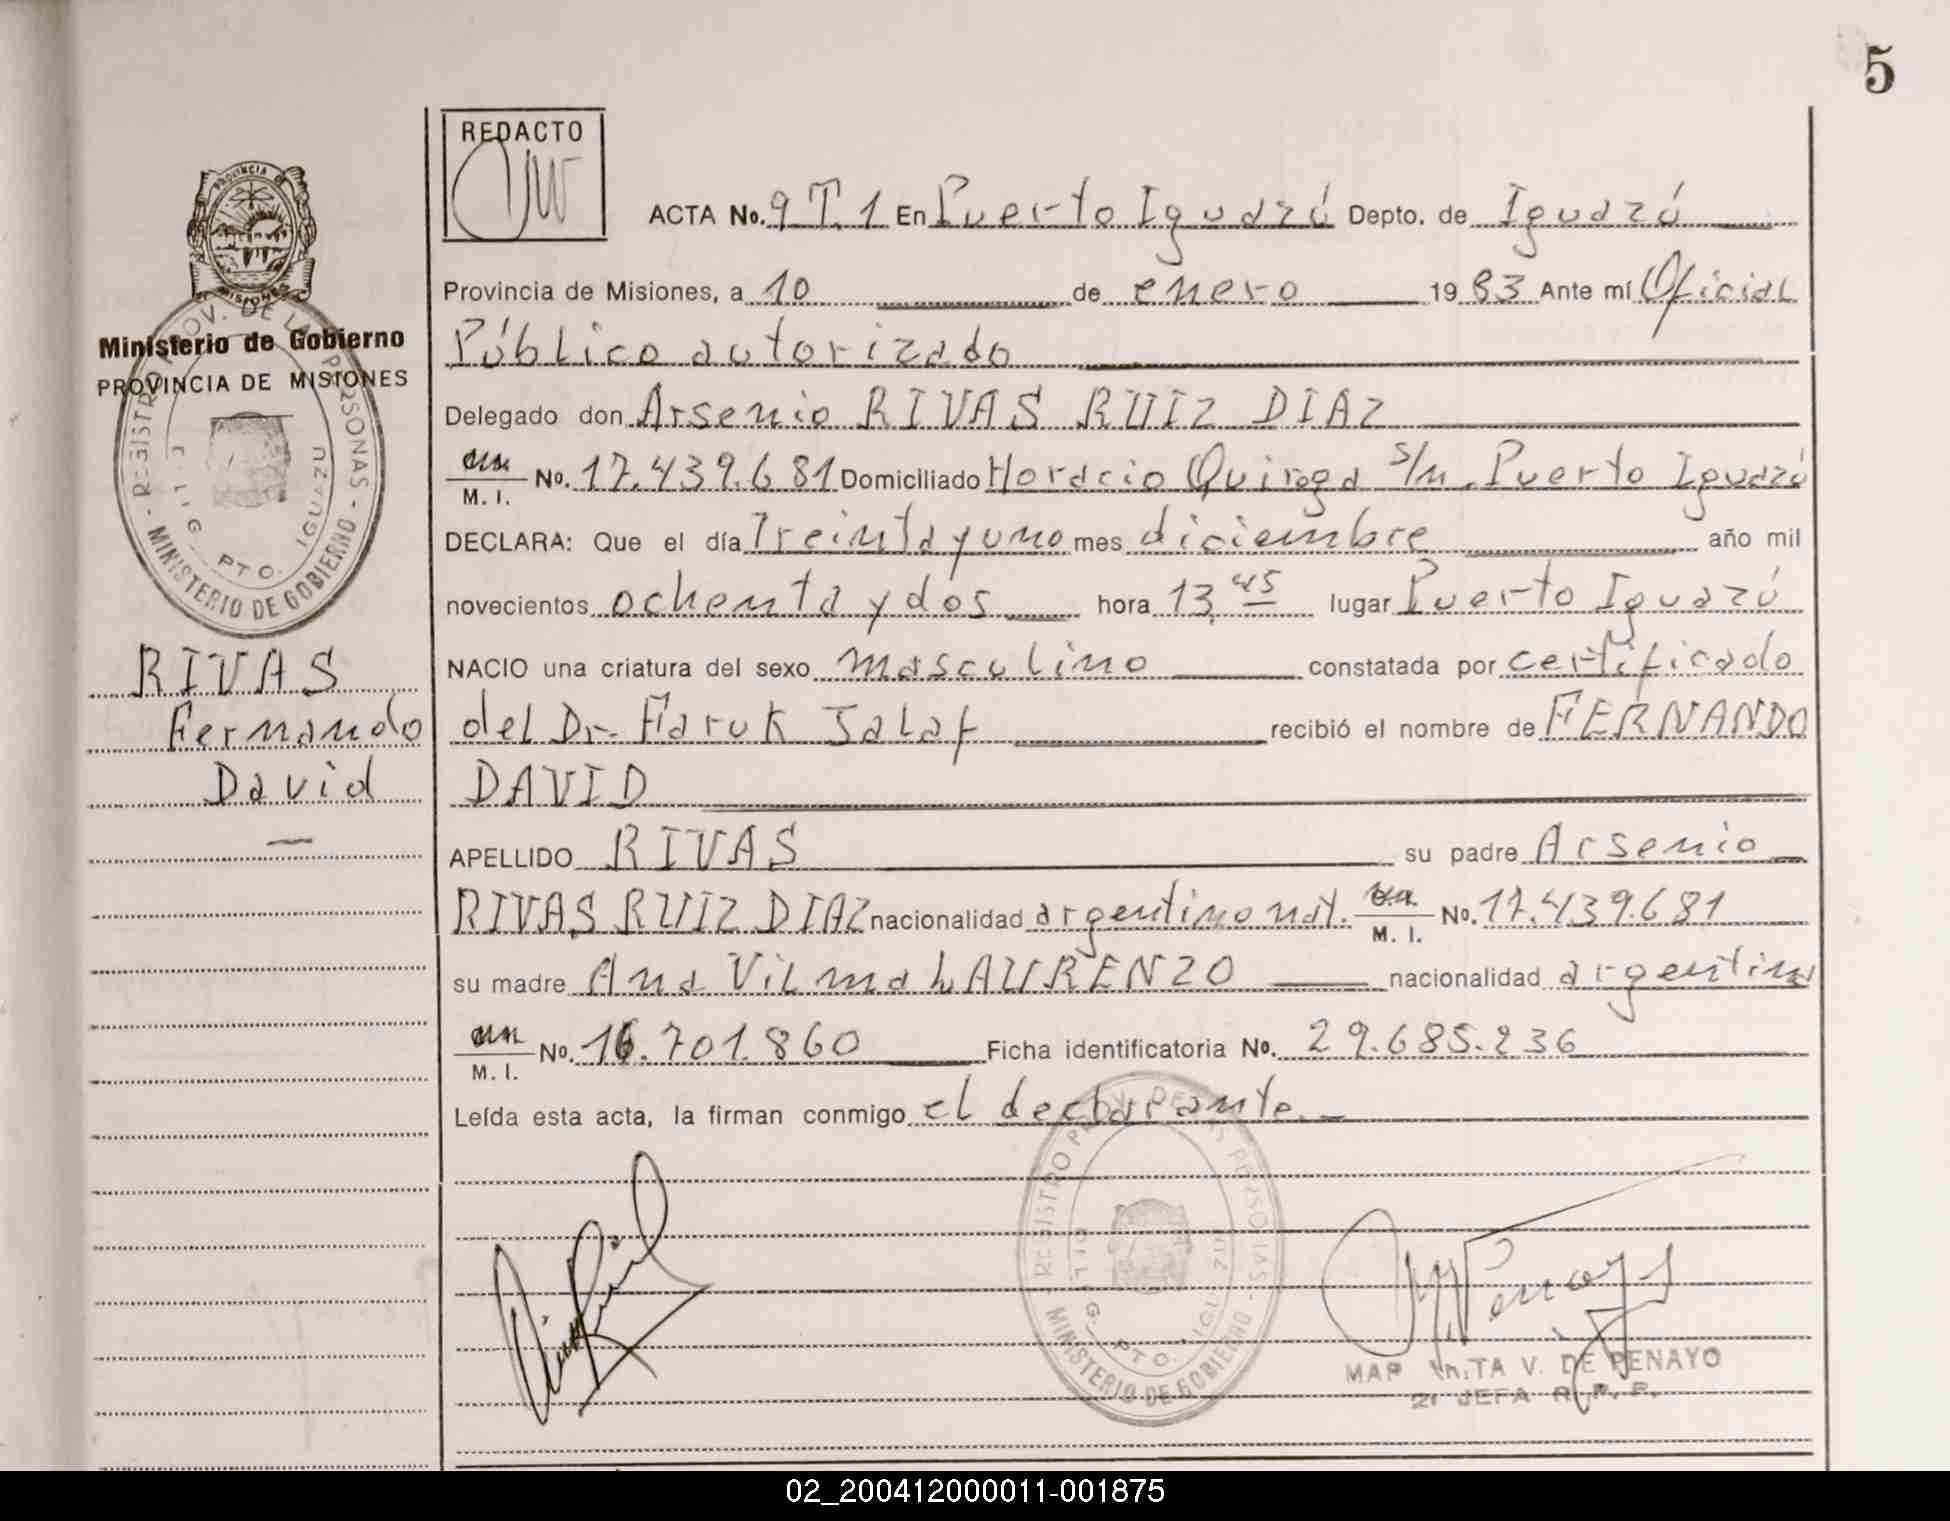 5
REDACTO
ACTA No. 9 T.1 En Puerto Iguazú Depto. de Iguazú
Provincia de Misiones, a 10 de enero 1983 Ante mí Oficial
Público autorizado
Delegado don Arsenio RIVAS RUIZ DIAZ
M. I. No. 17.439.681 Domiciliado Horacio Quiroga s/n. Puerto Iguazú
DECLARA: Que el día Treinta y uno mes diciembre año mil
novecientos ochenta y dos hora 13,45 lugar Puerto Iguazú
NACIO una criatura del sexo masculino constatada por certificado
del Dr. Faruk Jalaf recibió el nombre de FERNANDO
DAVID
APELLIDO RIVAS su padre Arsenio
RIVAS RUIZ DIAZ nacionalidad argentino nat. M. I. No. 17.439.681
su madre Ana Vilma LAURENZO nacionalidad argentina
M. I. No. 16.701.860 Ficha identificatoria No. 29.685.236
Leída esta acta, la firman conmigo el declarante.
PROVINCIA DE
MISIONES
Ministerio de Gobierno
PROVINCIA DE MISIONES
REGISTRO PROV. DE LAS PERSONAS - MINISTERIO DE GOBIERNO -
PTO. IGUAZU
RIVAS
Fernando
David
REGISTRO PROV. DE LAS PERSONAS - MINISTERIO DE GOBIERNO -
PTO. IGUAZU
V. DE PENAYO
JEFA R. P. P.
02_200412000011-001875